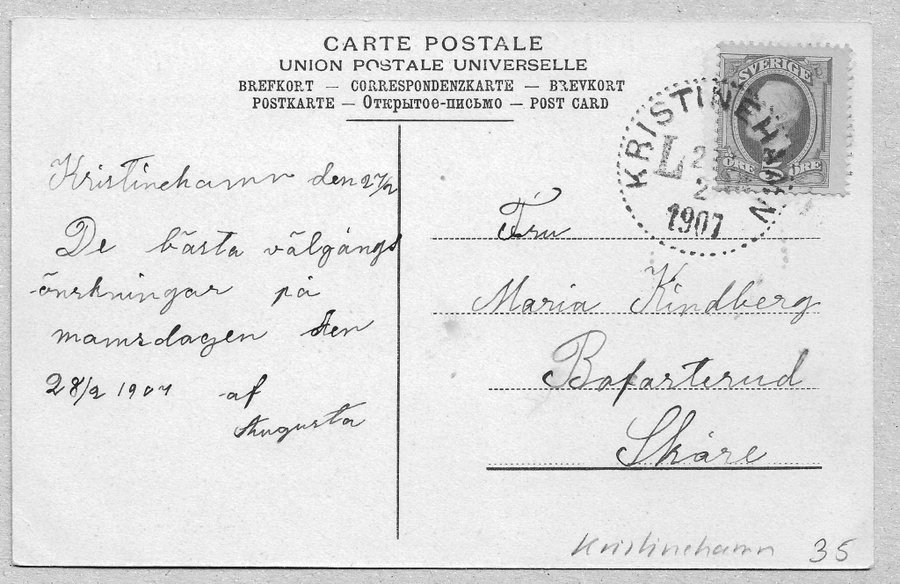 CARTE POSTALE
UNION POSTALE UNIVERSELLE
BREFKORT — CORRESPONDENZKARTE — BREVKORT
POSTKARTE — Открытое-письмо — POST CARD
SVERIGE
ÖRE ÖRE
KRISTINEHAMN
L 2
2
1907
Kristinehamn den 27/2
De bästa välgångs
önskningar på
namnsdagen den
28/2 1907 af
Augusta
Fru
Maria Kindberg
Skåre
Kristinehamn 35